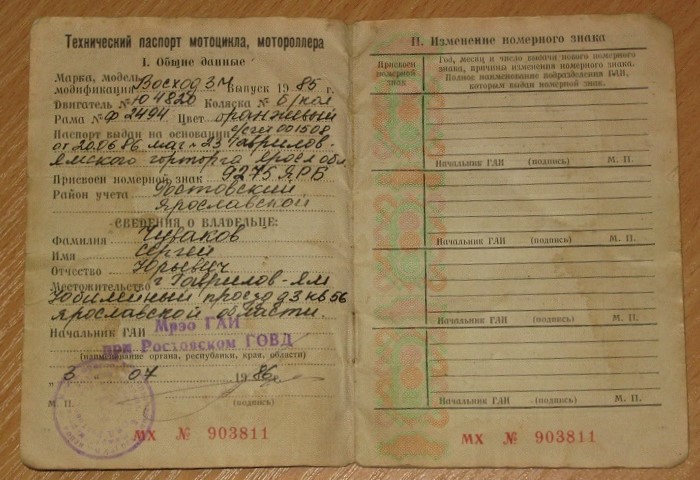 Технический паспорт мотоцикла, мотороллера
I. Общие данные
Марка, модель,
модификация Восход 3М Выпуск 1985 г.
Двигатель № Ю4820 Коляска № б/кол
Рама № Ф 2494 Цвет оранжевый
Паспорт выдан на основании счет 001508
от 20.06.86 маг-н 23 Гаврилов-
Ямского горторга Яросл обл
Присвоен номерной знак 9275 ЯРБ
Район учета Ростовский
Ярославской
СВЕДЕНИЯ О ВЛАДЕЛЬЦЕ:
Фамилия Чуваков
Имя Сергей
Отчество Юрьевич
Местожительство г Гаврилов-Ям
Юбилейный проезд д 3 кв 56
Ярославской области.
Начальник ГАИ Мрэо ГАИ
при Ростовском ГОВД
(наименование органа, республики, края, области)
„ 3 " 07 1986 г.
М. П. (подпись)
МХ № 903811
II. Изменение номерного знака
Присвоен
номерной
знак
Год, месяц и число выдачи нового номерного
знака, причины изменения номерного знака.
Полное наименование подразделения ГАИ,
которым выдан номерной знак.
Начальник ГАИ (подпись) М. П.
Начальник ГАИ (подпись) М. П.
Начальник ГАИ (подпись) М. П.
Начальник ГАИ (подпись) М. П.
МХ № 903811